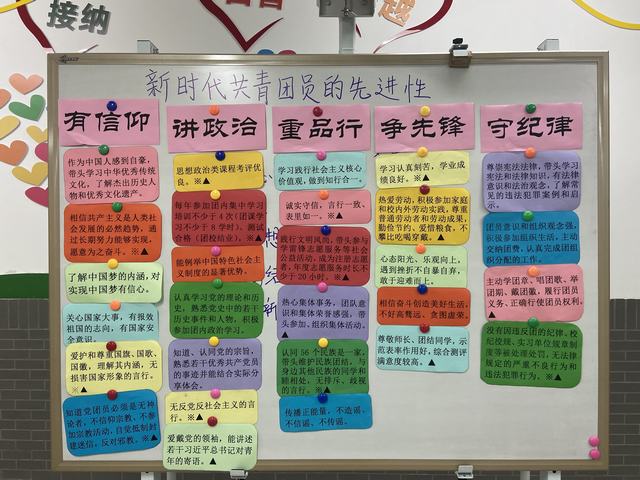 接纳
越
新时代共青团员的先进性
有信仰
讲政治
重品行
争先锋
守纪律
作为中国人感到自豪，
带头学习中华优秀传统
文化，了解杰出历史人
物和优秀文化遗产。
相信共产主义是人类社
会发展的必然趋势，通
过长期努力能够实现，
愿意为之奋斗。※▲
了解中国梦的内涵，对
实现中国梦有信心。
关心国家大事，有报效
祖国的志向，有国家安
全意识。
爱护和尊重国旗、国歌、
国徽，理解其内涵，无
损害国家形象的言行。
※▲
知道党团员必须是无神
论者，不信仰宗教、不参
加宗教活动，自觉抵制封
建迷信，反对邪教。※▲
思想政治类课程考评优
良。※▲
每年参加团内集中学习
培训不少于4次（团课学
习不少于8学时）、测试
合格（团校结业）。※▲
能例举中国特色社会主
义制度的显著优势。
认真学习党的理论和历
史，熟悉党史中的若干
历史事件和人物，积极
参加团内政治学习。
知道、认同党的宗旨，
熟悉若干优秀共产党员
的事迹并能结合实际分
享体会。
无反党反社会主义的言
行。※▲
爱戴党的领袖，能讲述
若干习近平总书记对青
年的寄语。▲
学习践行社会主义核心
价值观，做到知行合一。
诚实守信，言行一致、
表里如一。※▲
践行文明风尚，带头参与
学雷锋志愿服务等社会
公益活动，成为注册志愿
者，年度志愿服务时长不
少于20小时。※▲
热心集体事务，团队意
识和集体荣誉感强，带
头参加、组织集体活动。
▲
认同56个民族是一家，
带头维护民族团结，与
身边其他民族的同学和
睦相处，无排斥、歧视
的言行。※▲
传播正能量，不造谣、
不信谣、不传谣。
学习认真刻苦，学业成
绩良好。※▲
热爱劳动，积极参加家庭
和校内外劳动实践，尊重
普通劳动者和劳动成果，
勤俭节约、爱惜粮食，不
攀比吃喝穿戴。▲
心态阳光、乐观向上，
遇到挫折不自暴自弃，
敢于迎难而上。
相信奋斗创造美好生活，
不好高骛远、贪图虚荣。
尊敬师长、团结同学，示
范表率作用好，综合测评
满意度较高。▲
尊崇宪法法律，带头学习
宪法和法律知识，有法律
意识和法治观念，了解常
见的违法犯罪案例和启
示。
团员意识和组织观念强，
积极参加组织生活，主动
交纳团费，认真完成团组
织分配的工作。
主动学团章、唱团歌、举
团旗、戴团徽，履行团员
义务、正确行使团员权利。
▲
没有因违反团的纪律、校
纪校规、实习单位规章制
度等被处理处罚，无法律
规定的严重不良行为和
违法犯罪行为。※▲